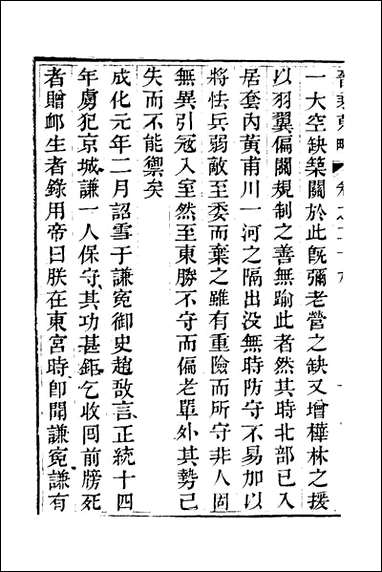 晉乘蒐略
一大空缺築關於此旣彌老營之缺又增樺林之援
以羽翼偏關規制之善無踰此者然其時北部已入
居套內黃甫川一河之隔出没無時防守不易加以
將怯兵弱敵至委而棄之雖有重險而所守非人固
無異引寇入室然至東勝不守而偏老單外其勢已
失而不能禦矣
成化元年二月詔雪于謙寃御史趙敔言正統十四
年虜犯京城謙一人保守其功甚鉅乞收囘前牓死
者贈䘏生者錄用帝曰朕在東宮時卽聞謙寃謙有